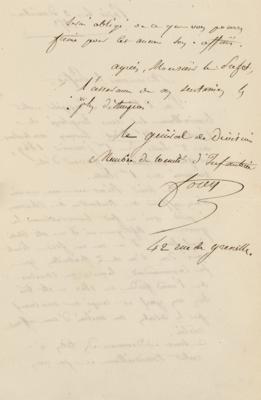 serai obligé de ce que vous pourrez
faire pour
agréez, Monsieur le Préfet,
l'assurance de mes sentiments les
plus distingués
Le général de Division
Membre du comité d'Infanterie
Forey
42 rue de grenelle.